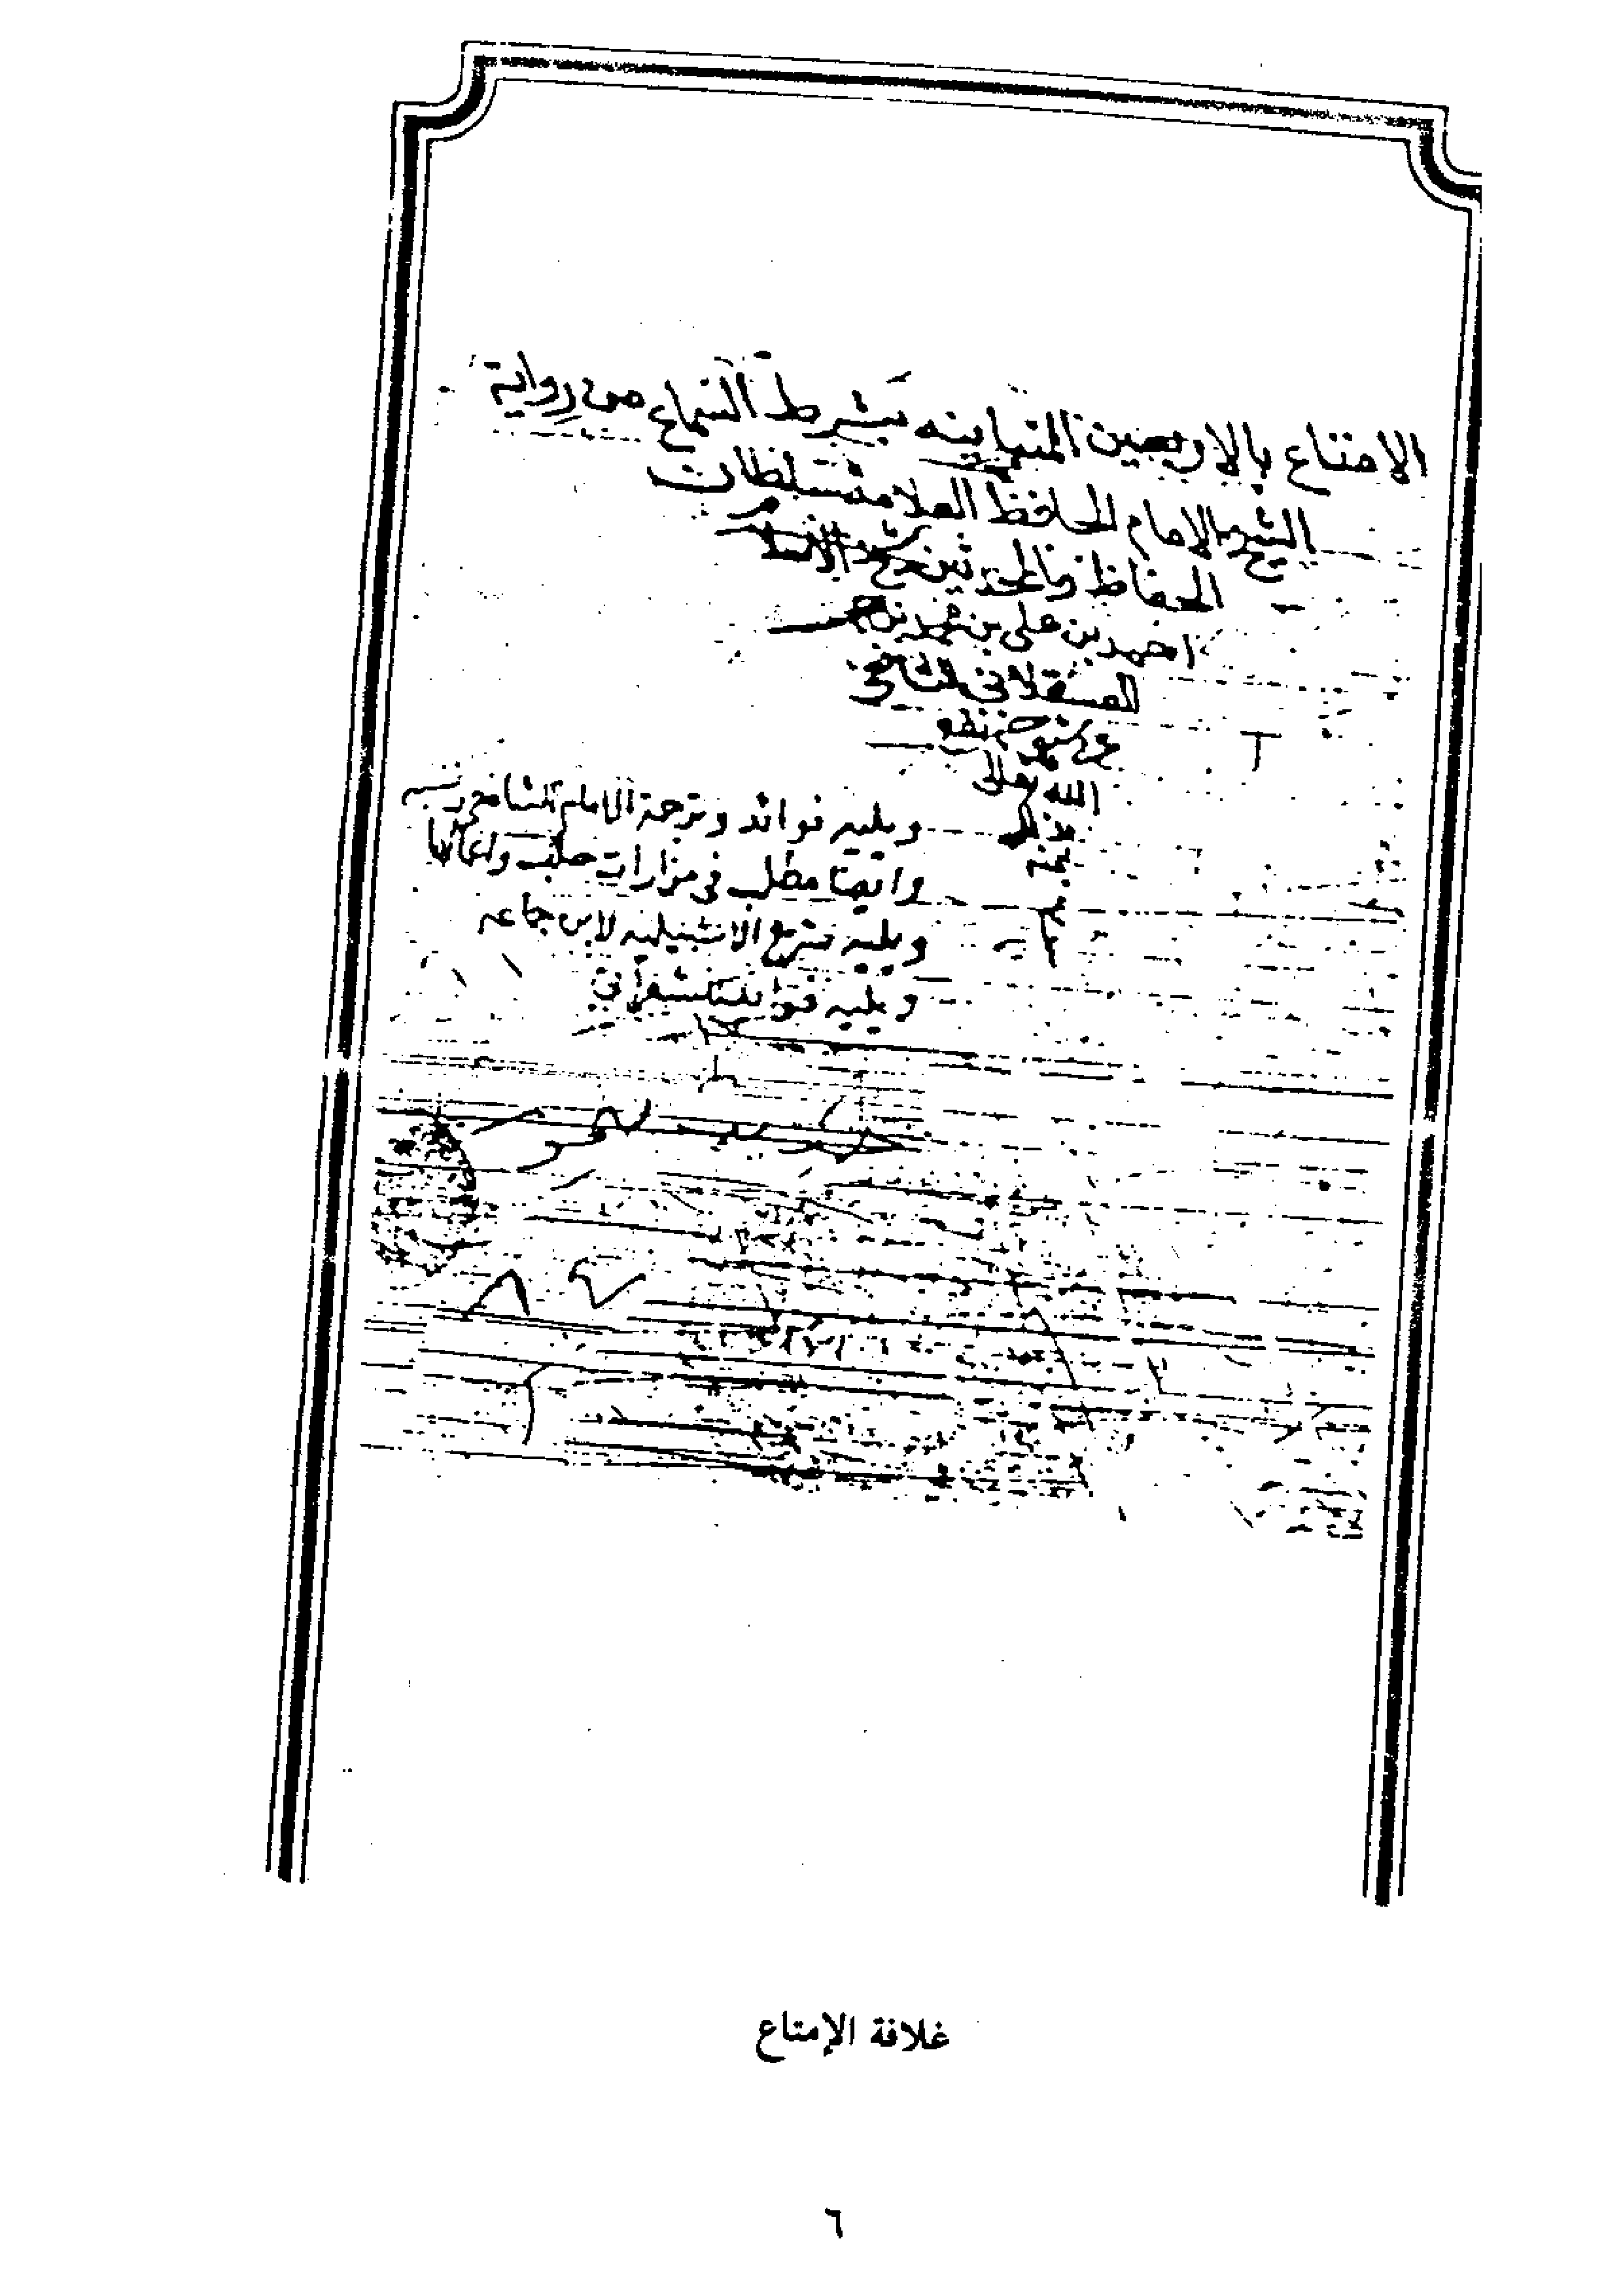 الامتاع بالاربعين المتباينه بشرط السماع من رواية
الشيخ الامام الحافظ العلامة سلطان
الحفاظ والمحدثين شيخ الاسلام
احمد بن علي بن محمد بن حجر
العسقلاني الشافعي
الله تعالى
ويليه فوائد وترجمة الامام الشافعي ونسبه
وايضا مطلب في مزارات حلب واعمالها
ويليه شرح الاشبيليه لابن جماعه
ويليه فوائد
غلافة الإمتاع
٦